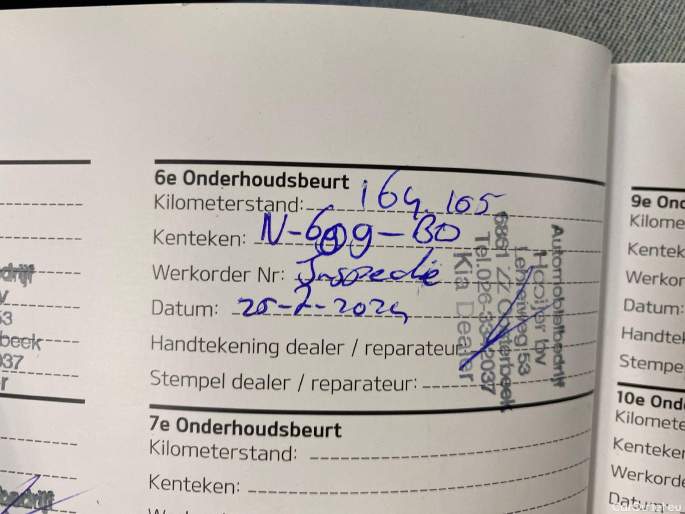 6e Onderhoudsbeurt
Kilometerstand: 164.165
Kenteken: N-609-BD
Werkorder Nr: Inspectie
Datum: 26-2-2024
Handtekening dealer / reparateur:
Stempel dealer / reparateur:
Automobielbedrijf
Hooijer bv
53
6861 ZZ Oosterbeek
Tel.026-3332037
Kia Dealer
7e Onderhoudsbeurt
Kilometerstand:
Kenteken:
9e Ond
Kilome
Kentek
Werkor
Datum:
Handtek
Stempe
10e Ond
Kilomete
Kenteken
Werkorde
Datum:
drijf
v
53
beek
037
r
bedrijf